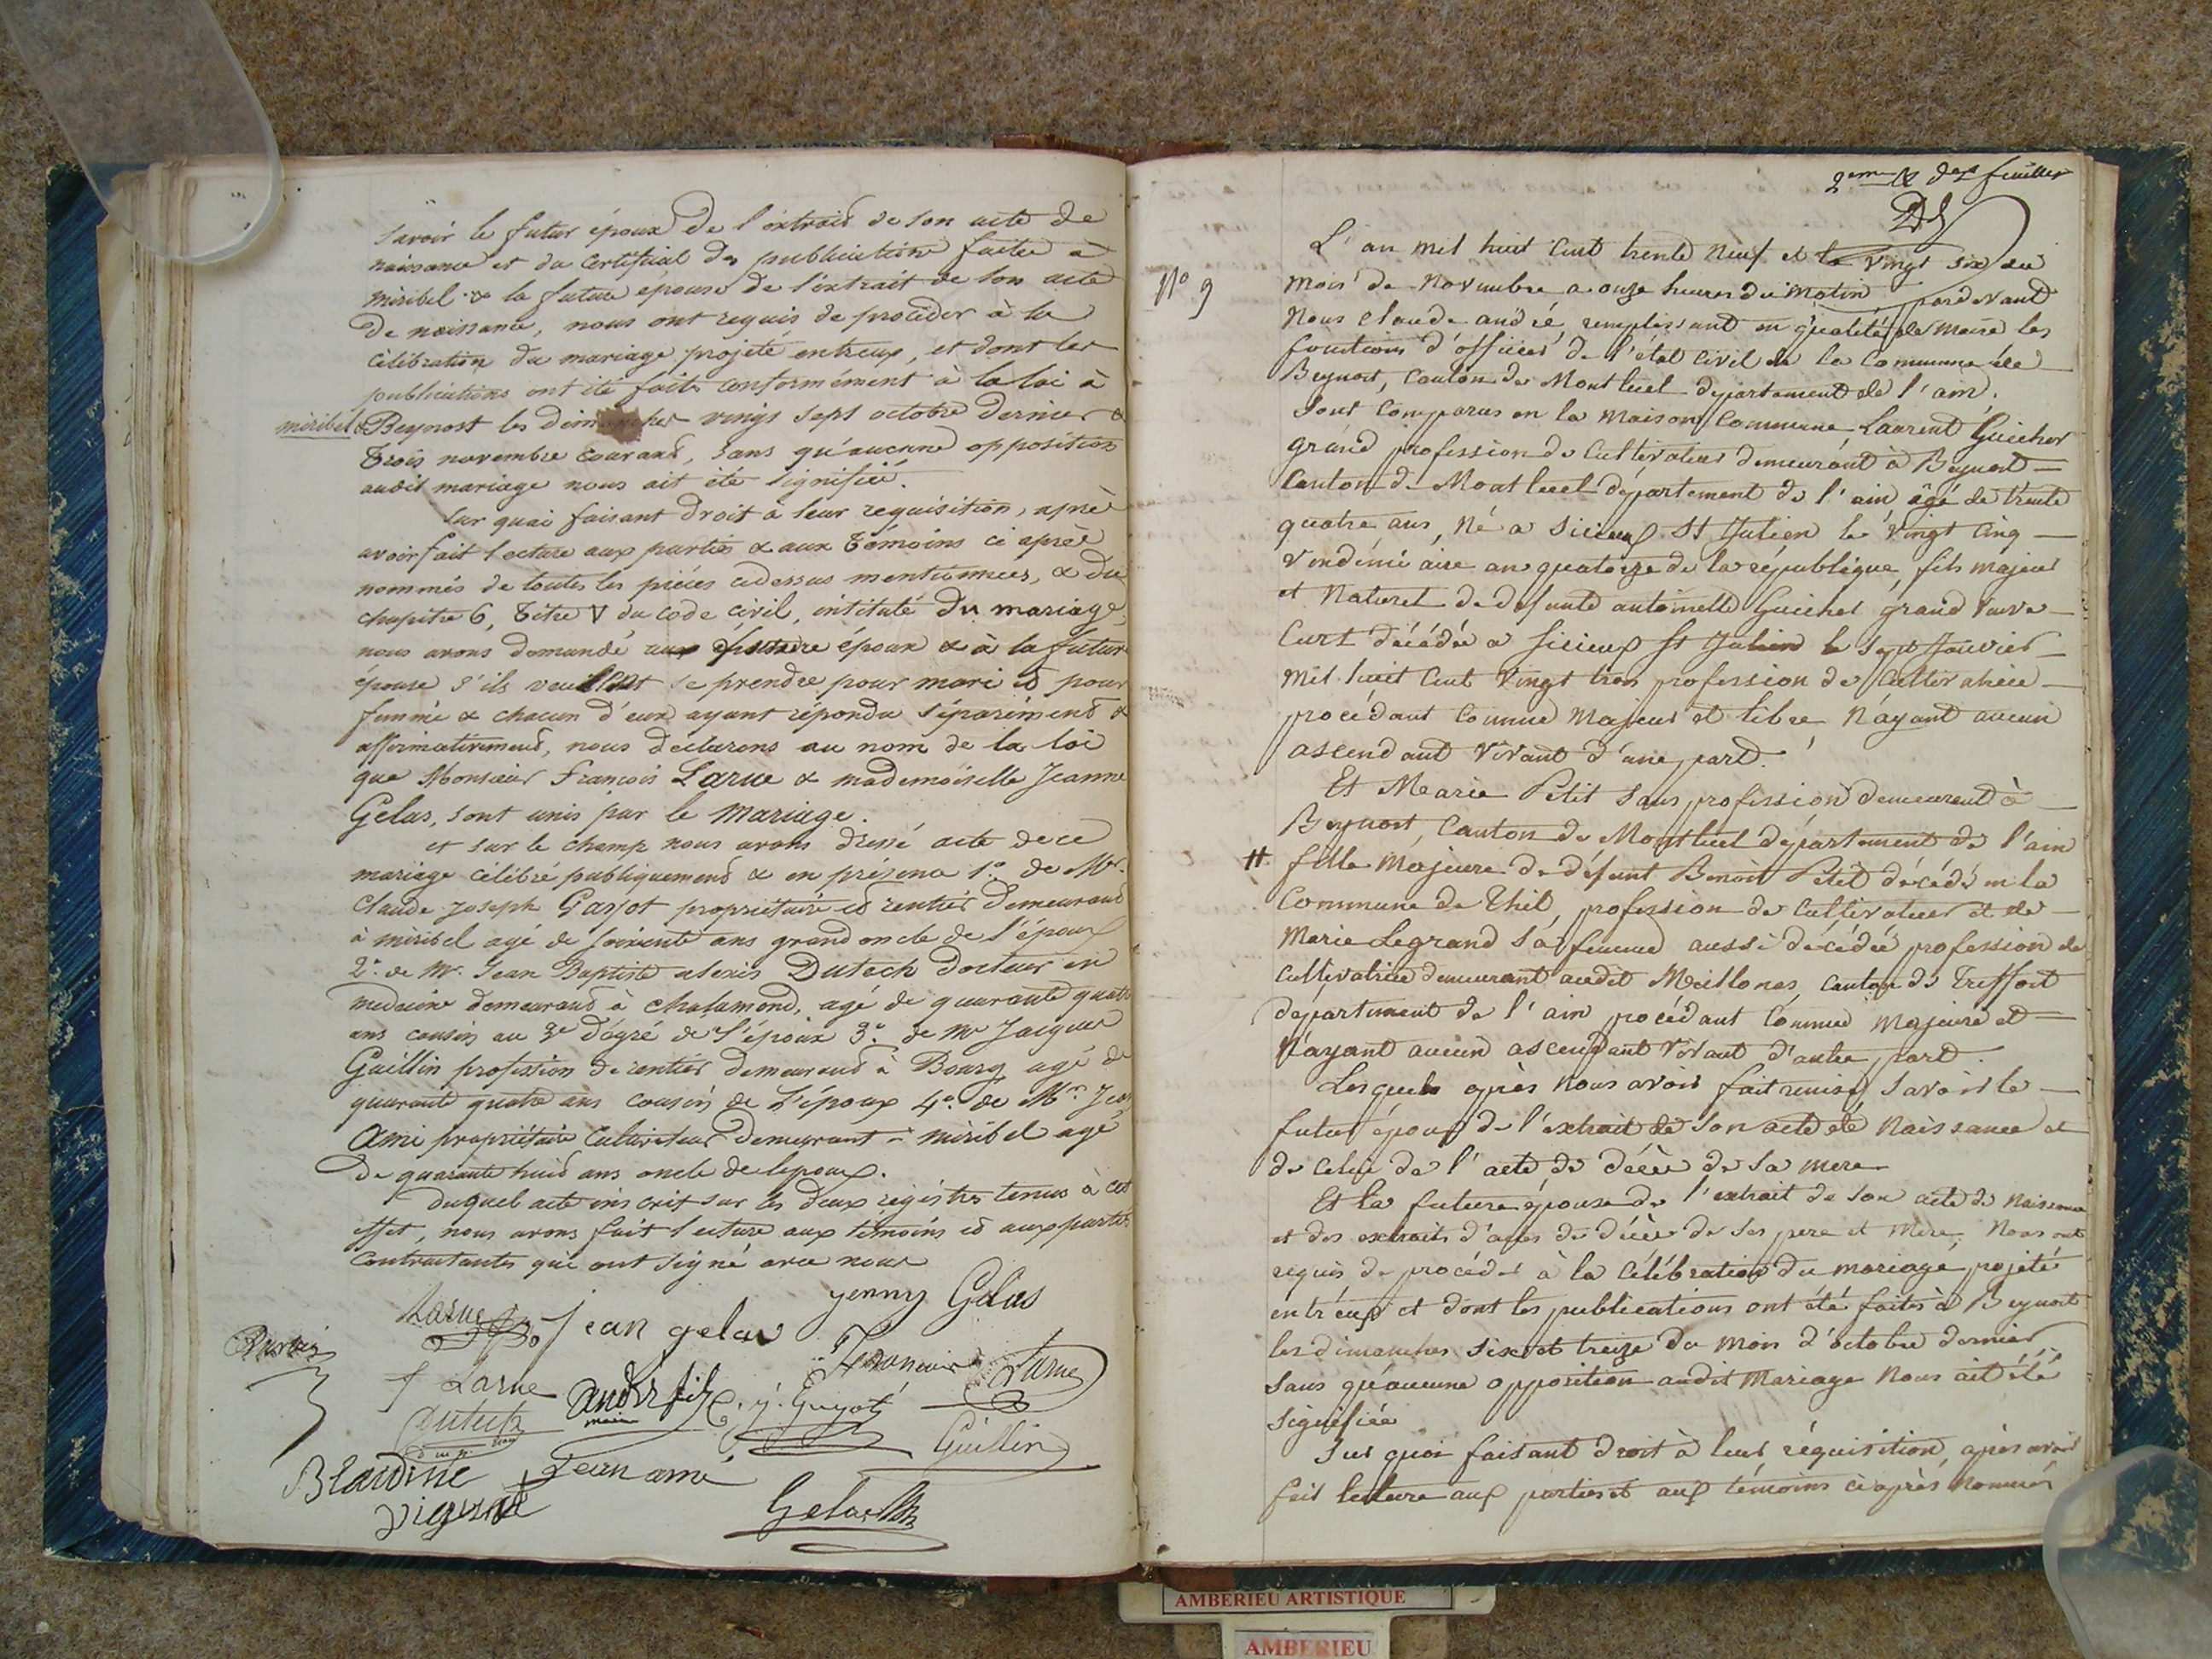 savoir le futur époux de l'extrait de son acte de
naissance et du certificat des publications faites à
miribel & la future épouse de l'extrait de son acte
de naissance, nous ont requis de procéder à la
célébration du mariage projeté entreux, et dont les
publications ont été faites conformément à la loi à
miribel & Beynost les dimanches vingt sept octobre dernier &
trois novembre courant, sans qu'aucune opposition
audit mariage nous ait été signifiée.
Sur quoi faisant droit à leur requisition, après
avoir fait lecture aux parties & aux témoins ci après
nommés de toutes les pièces cidessus mentionnées, & du
chapitre 6, titre V du code civil, intitulé Du mariage,
nous avons demandé au future époux & à la future
épouse s'ils veuillent se prendre pour mari et pour
femme & chacun d'eux ayant répondu séparément &
affirmativement, nous declarons au nom de la loi
que Monsieur François Larue & mademoiselle Jeanne
Gelas, sont unis par le mariage.
et sur le champ nous avons dressé acte de ce
mariage célébré publiquement & en présence 1° de Mr.
Claude Joseph Gassot propriétaire et rentier demeurant
à miribel agé de soixente ans grand oncle de l'époux
2° de Mr. Jean Baptiste alexis Dutech docteur en
medecine demeurant à chalamond, agé de quarante quatre
ans cousin au 3e dégré de l'époux 3° de Mr Jacques
Guillin profession de rentier demeurant à Bourg agé de
quarante quatre ans cousin de l'époux 4° de Mr. Jean
Ami propriétaire Cultivateur demeurant à miribel agé
de quarante huit ans oncle de lepoux.
Duquel acte inscrit sur les deux régistres tenus à cet
effet, nous avons fait lecture aux témoins et aux parties
contractantes qui ont signé avec nous
Larue jean gelas jenny Gelas
f Larue andré fils maire Guyot François Larue
Dutech Guillin
Blandine jean ami
Gelas
2eme & der feuillet
N° 9
L'an mil huit cent trente neuf et le vingt six du
mois de Novembre a onze heures du Matin pardevant
Nous Claude andré, remplissant en qualité de maire les
fonctions d'officier de l'état civil de la Commune de
Beynost, Canton de Montluel département de l'ain,
Sont Comparus en la Maison Commune Laurent Guichet
grand profession de Cultivateur demeurant à Beynost
Canton de Montluel département de l'ain âgé de trente
quatre ans, Né a Sicieux St Julien le Vingt Cinq
Vendémiaire an quatorze de la république, fils majeur
et Naturel de defunte antoinette Guichet grand veuve
Curt décédée a Sicieux St Julien le Sept Janvier
mil huit Cent Vingt trois profession de Cultivatrice
procédant Comme Majeur et libre, N'ayant aucun
ascendant vivant d'une part.
Et Marie Petit sans profession demeurent à
Beynost, Canton de Montluel département de l'ain
# fille Majeure de défunt Benoit Petit décédé en la
Commune de Thil, profession de Cultivateur et de
Marie Legrand Sa femme aussi décédée profession de
Cultivatrice demeurant audit Meillonas, Canton de Treffort
département de l'ain procédant Comme Majeure et
N'ayant aucun ascendant vivant d'autre part.
Lesquels après Nous avoir fait remise, Savoir le
futur époux de l'extrait de Son acte de Naissance et
de Celui de l'acte de décès de Sa mere
Et la future épouse de l'extrait de Son acte de Naissance
et des extraits d'actes de décès de Ses pere et Mere, Nous ont
requis de procéder à la Célébration du mariage projeté
entr'eux et dont les publications ont été faites à Beynost
les dimanches Six et treize du mois d'octobre dernier
Sans qu'aucune opposition audit Mariage Nous ait été
Signifiée
Sur quoi faisant droit à leur réquisition, après avoir
fait lecture aux parties et aux témoins ci après nommés
AMBERIEU ARTISTIQUE
AMBERIEU